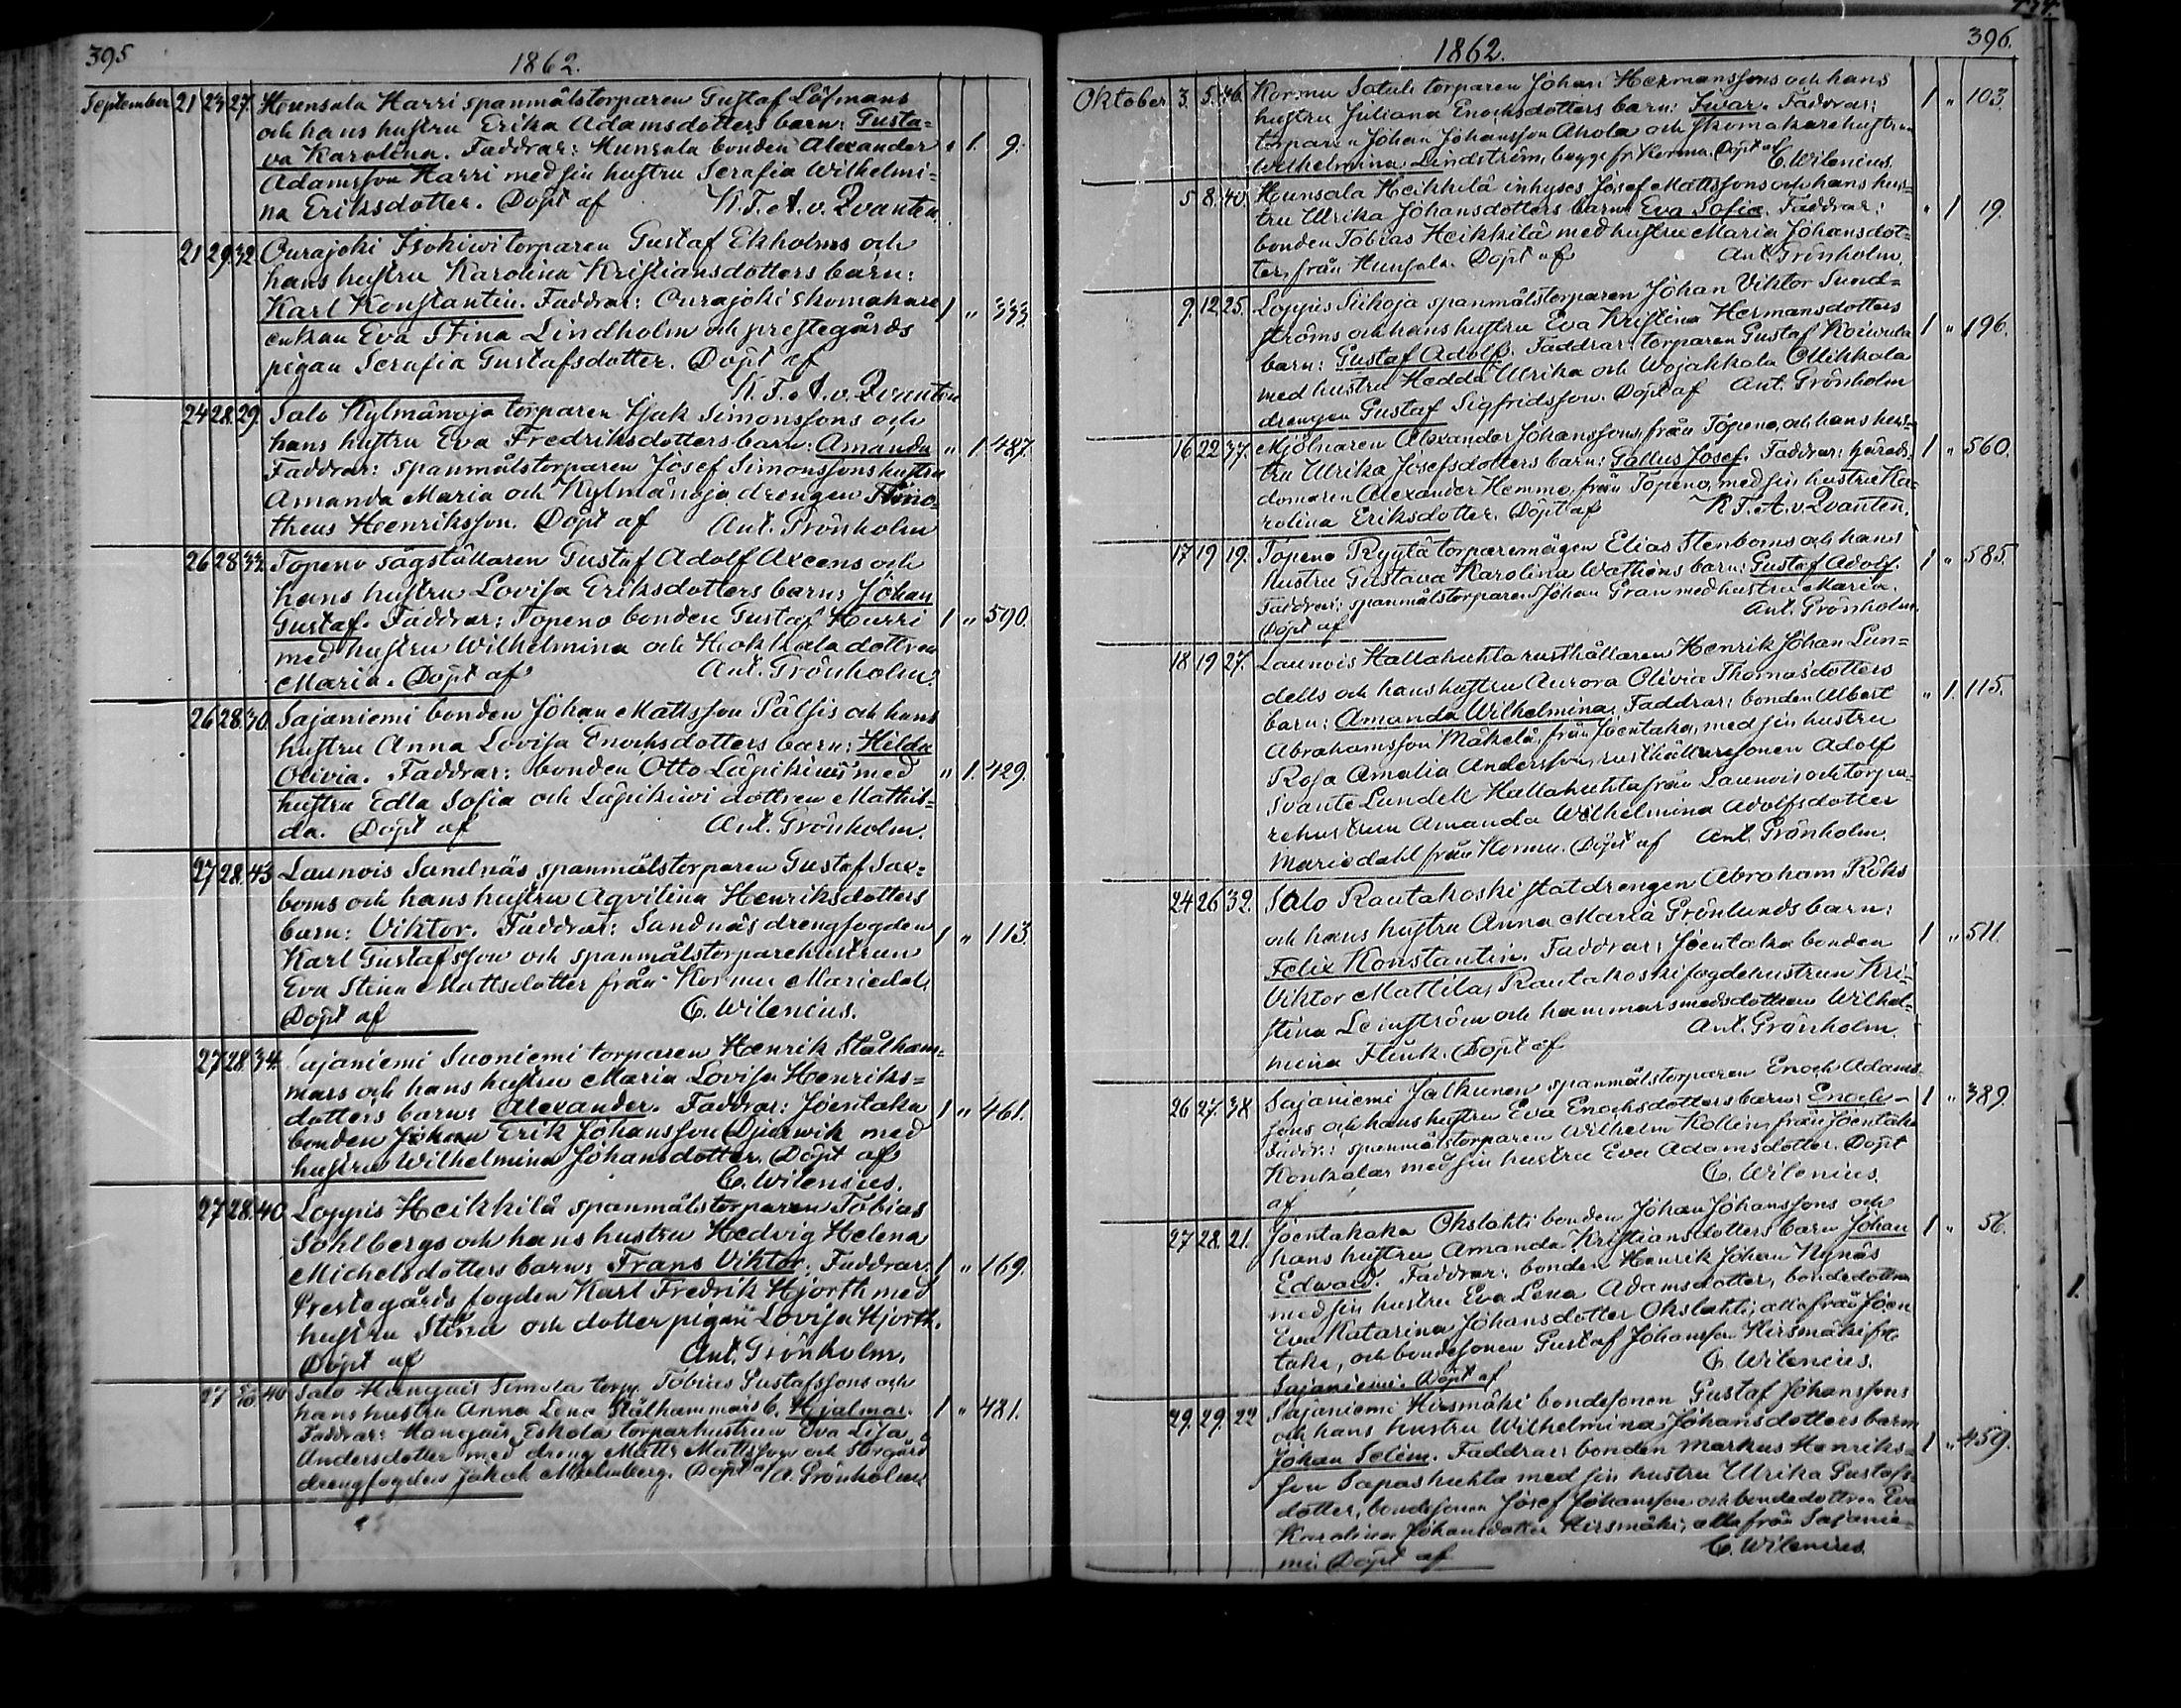 395
1862.
September 21 23 27. Hunsala Harri spanmålstorparen Gustaf Löfmans
och hans hustru Erika Adamsdotters barn: Gusta=
va Karolina. Faddrar: Hunsala bonden Alexander „ 1 9.
Adamsson Harri med sin hustru Serafia Wilhelmi=
na Eriksdotter. Döpt af K.T.A.v.Qvanten.
21 29 32. Ourajoki Isokiwi torparen Gustaf Ekholms och
hans hustru Karolina Kristiansdotters barn:
Karl Konstantin. Faddrar: Ourajoki skomakare 1 „ 333.
enkan Eva Stina Lindholm och prestegårds
pigan Serafia Gustafsdotter. Döpt af
K.T.A.v.Qvanten
24 28 29. Salo Kylmänoja torparen Isak Simonssons och
hans hustru Eva Fredriksdotters barn: Amanda „ 1 487.
Faddrar: spanmålstorparen Josef Simonssons hustru
Amanda Maria och Kylmänoja drengen Timo=
theus Henriksson. Döpt af Ant. Grönholm
26 28 33. Topeno sågställaren Gustaf Adolf Axcens och
hans hustru Lovisa Eriksdotters barn: Johan
Gustaf. Faddrar: Topeno bonden Gustaf Hurri 1 „ 590.
med hustru Wilhelmina och Hokkala dottren
Maria. Döpt af Ant. Grönholm.
26 28 30. Sajaniemi bonden Johan Mattsson Pälsis och hans
hustru Anna Lovisa Enochsdotters barn: Hilda
Olivia. Faddrar: bonden Otto Läpikiwi med „ 1. 429.
hustru Edla Sofia och Läpikiwi dottren Mathil=
da. Döpt af Ant. Grönholm.
27 28. 43 Launois Sandnäs spanmålstorparen Gustaf Sax=
boms och hans hustru Aqvilina Henriksdotters
barn: Viktor. Faddrar: Sandnäs drengfogden 1 „ 113.
Karl Gustafsson och spanmålstorparehustrun
Eva Stina Mattsdotter från Kormu Mariedal.
Döpt af C. Wilenius.
27 28. 34. Sajaniemi Suoniemi torparen Henrik Stålham=
mars och hans hustru Maria Lovisa Henriks=
dotters barn: Alexander. Faddrar: Joentaka 1 „ 461.
bonden Johan Erik Johansson Djurwik med
hustru Wilhelmina Johansdotter. Döpt af
C. Wilenius.
27 28. 40 Loppis Heikkilä spanmålstorparen Tobias
Sohlbergs och hans hustru Hedvig Helena
Michelsdotters barn: Frans Viktor. Faddrar: 1 „ 169.
Prestegårds fogden Karl Fredrik Hjorth med
hustru Stina och dotter pigan Lovisa Hjorth.
Döpt af Ant. Grönholm.
27 40 Salo Mangais Simola torp. Tobias Gustafssons och
hans hustru Anna Lena Stålhammars b. Hjalmar. 1 „ 481.
Faddrar: Mangais Eskola torparhustrun Eva Lisa
Andersdotter med dreng Matts Mattsson och Storgård
drengfogden Jakob Malmberg. Döpt af A. Grönholm.
396.
1862.
Oktober 3. 5. 46. Kormu Satuli torparen Johan Hermanssons och hans
hustru Juliana Enochsdotters barn: Iwar. Faddrar: 1 „ 103.
torparen Johan Johansson Ahola och skomakarehustrun
Wilhelmina Lindström, begge fr. Kormu. Döpt af C. Wilenius.
5 8. 40. Hunsala Heikkilä inhyses Josef Mattssons och hans hus=
tru Ulrika Johansdotters barn: Eva Sofia. Faddrar: „ 1 19.
bonden Tobias Heikkilä med hustru Maria Johansdot=
ter, från Hunsala. Döpt af Ant. Grönholm.
9. 12. 25. Loppis Siikoja spanmålstorparen Johan Viktor Sund=
ströms och hans hustru Eva Kristina Hermansdotters
barn: Gustaf Adolf. Faddrar: torparen Gustaf Koiwula 1 „ 196.
med hustru Hedda Ulrika och Wojakkala Mikkola
drengen Gustaf Sigfridsson. Döpt af Ant. Grönholm
16 22 37. Mjölnaren Alexander Johanssons, från Topeno, och hans hus=
tru Ulrika Josefsdotters barn: Gallus Josef. Faddrar: härads= 1 „ 560.
domaren Alexander Hemmo från Topeno, med sin hustru Ka=
rolina Eriksdotter. Döpt af K.T.A.v.Qvanten.
17 19 19. Topeno Ryytä torparemågen Elias Stenboms och hans
hustru Gustava Karolina Wathéns barn: Gustaf Adolf. 1 „ 585.
Faddrar: spanmålstorparen Johan Gran med hustru Maria.
Döpt af Ant. Grönholm.
18 19 27. Launois Hallahuhta rusthållaren Henrik Johan Lun=
dells och hans hustru Aurora Olivia Thomasdotters
barn: Amanda Wilhelmina. Faddrar: bonden Albert „ 1. 115.
Abrahamsson Mäkelä, från Joentaka, med sin hustru
Rosa Amalia Andersson, rusthållaresonen Adolf
Svante Lundell Hallahuhta från Launois och torpa=
rehustrun Amanda Wilhelmina Adolfsdotter
Mariedahl från Kormu. Döpt af Ant. Grönholm.
24 26 32. Salo Rautakoski statdrengen Abraham Röks
och hans hustru Anna Maria Grönlunds barn:
Felix Konstantin. Faddrar: Joentaka bonden 1 „ 511.
Viktor Mattila, Rautakoski fogdehustrun Kri=
stina Leinström och hammarsmedsdottren Wilhel=
mina Flink. Döpt af Ant. Grönholm.
26 27. 38 Sajaniemi Jalkunen spanmålstorparen Enoch Adams=
sons och hans hustru Eva Enochsdotters barn: Enoch. 1 „ 389.
Faddr.: spanmålstorparen Wilhelm Kollin, från Joentaka
Konkala, med sin hustru Eva Adamsdotter. Döpt
af C. Wilenius.
27 28. 21. Joentakaka Okslahti bonden Johan Johanssons och
hans hustru Amanda Kristiansdotters barn Johan 1 „ 56.
Edward. Faddrar: bonden Henrik Johan Nynäs
med sin hustru Eva Lena Adamsdotter, bondedottren
Eva Katarina Johansdotter Okslahti, alla från Joen
taka, och bondesonen Gustaf Johansson Hirsmäki fr.
Sajaniemi. Döpt af C. Wilenius.
29. 29. 22 Sajaniemi Hirsmäki bondesonen Gustaf Johanssons
och hans hustru Wilhelmina Johansdotters barn
Johan Selim. Faddrar: bonden Markus Henriks= 1 „ 459.
son Sapashuhta med sin hustru Ulrika Gustafs=
dotter, bondesonen Josef Johansson och bondedottren Eva
Karolina Johansdotter Hirsmäki, alla från Sajanie=
mi. Döpt af C. Wilenius.